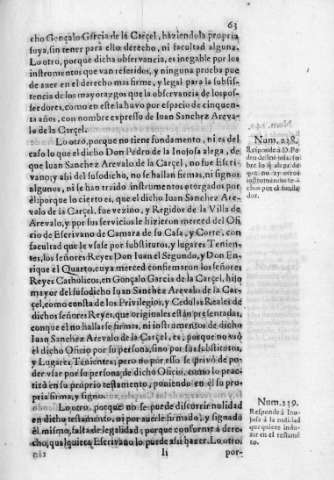 63
cho Gonçalo Garcia de la Carçel, haziendola propria
suya, sin tener para ello derecho, ni facultad alguna.
Lo otro, porque dicha observancia, es inegable por los
instrumentos que van referidos, y ninguna prueba pue
de aver en el derecho mas firme, y legal para la subsis-
tencia de los mayorazgos que la observancia de los pos-
seedores, como en este la huvo por espacio de cinquen-
ta años, con nombre expresso de Iuan Sanchez Areva-
lo de la Carçel.
Lo otro, porque no tiene fundamento, ni es del
caso lo que el dicho Don Pedro de la Inojosa alega, de
que Iuan Sanchez Arevalo de la Carçel, no fue Escri-
vano; y assi del susodicho, no se hallan firmas, ni signos
algunos, ni se han traido instrumentos otorgados por
èl: porque lo cierto es, que el dicho Iuan Sanchez Are-
valo de la Carçel, fue vezino, y Regidor de la Villa de
Arevalo, y por sus servicios le hizieron merced del Ofi-
cio de Escrivano de Camara de su Casa, y Corte, con
facultad que le vsasse por substitutos, y lugares Tenien-
tes, los señores Reyes Don Iuan el Segundo, y Don En-
rique el Quarto, cuya merced confirmaron los señores
Reyes Catholicos, en Gonçalo Garcia de la Carçel, hijo
mayor del susodicho Iuan Sanchez Arevalo de la Car-
çel, como consta de los Privilegios, y Cedulas Reales de
dichos señores Reyes, que originales estàn presentadas,
conque èl no hallarse firmas, ni instrumentos de dicho
Iuan Sanchez Arevalo de la Carçel, es, porque no vsò
el dicho Oficio por su persona, sino por sus substitutos,
y Lugares Tenientes; pero no por esso se privò de po-
der vsar por su persona de dicho Oficio, como lo prac-
ticò en su proprio testamento, poniendo en èl su pro-
pria firma, y signo.
Lo otro, porque no se puede discurrir nulidad
en dicho testamento, ni por averle firmado, y signado
èl mismo, falta de legalidad; porque conforme à dere-
cho, qualquiera Escrivano lo puede assi hazer. Lo otro,
Ii
por-
Num. 218.
Responde à D. Pe
Num. 219.
Responde à Ino-
josa à la nulidad
que quiere indu-
zir en el testamē
to.